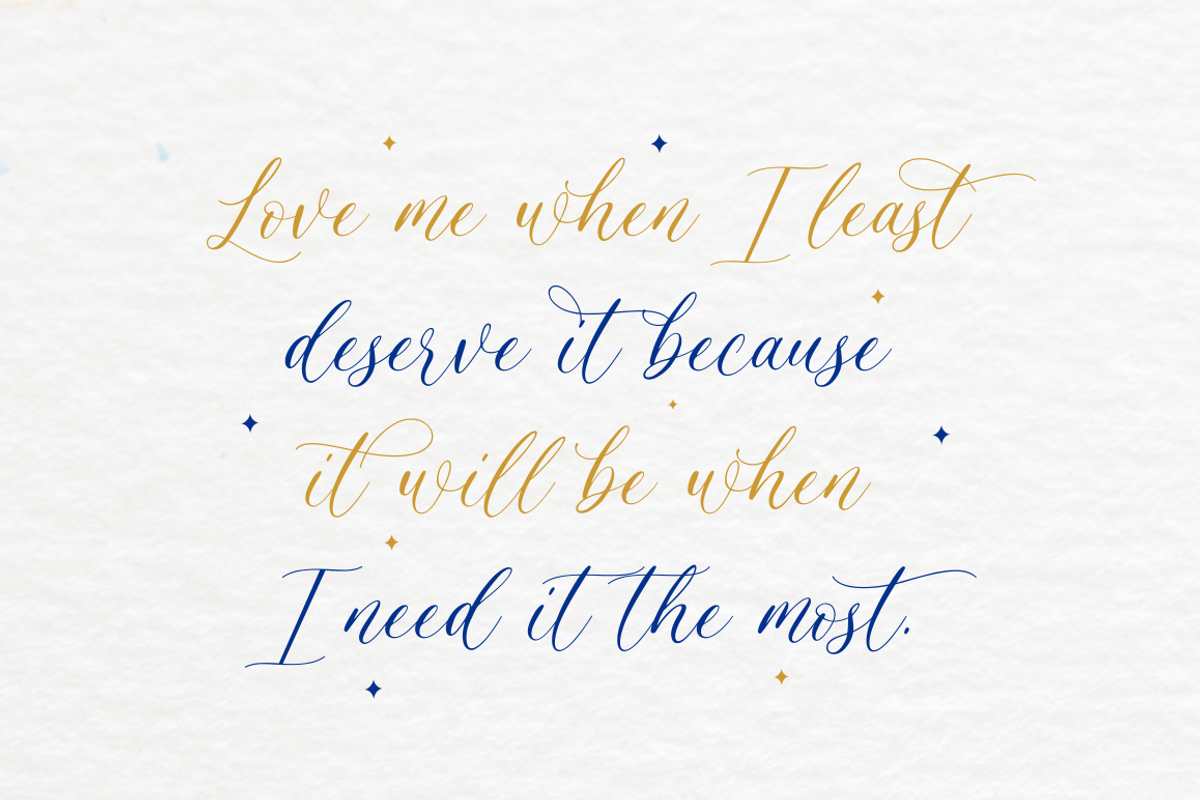 Love me when I least
deserve it because
it will be when
I need it the most.